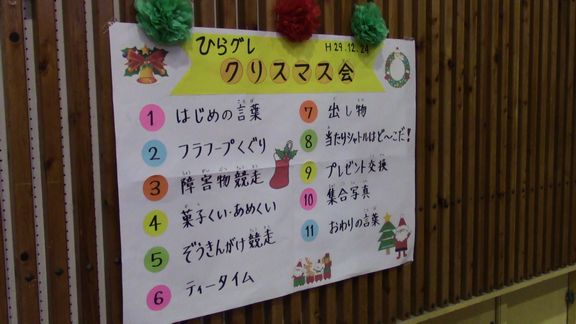 ひらグレ
H29.12.24
クリスマス会
1 はじめの言葉
2 フラフープくぐり
3 障害物競走
4 菓子くい・あめくい
5 ぞうきんがけ競走
6 ティータイム
7 出し物
8 当たりシャトルはど〜こだ!
9 プレゼント交換
10 集合写真
11 おわりの言葉